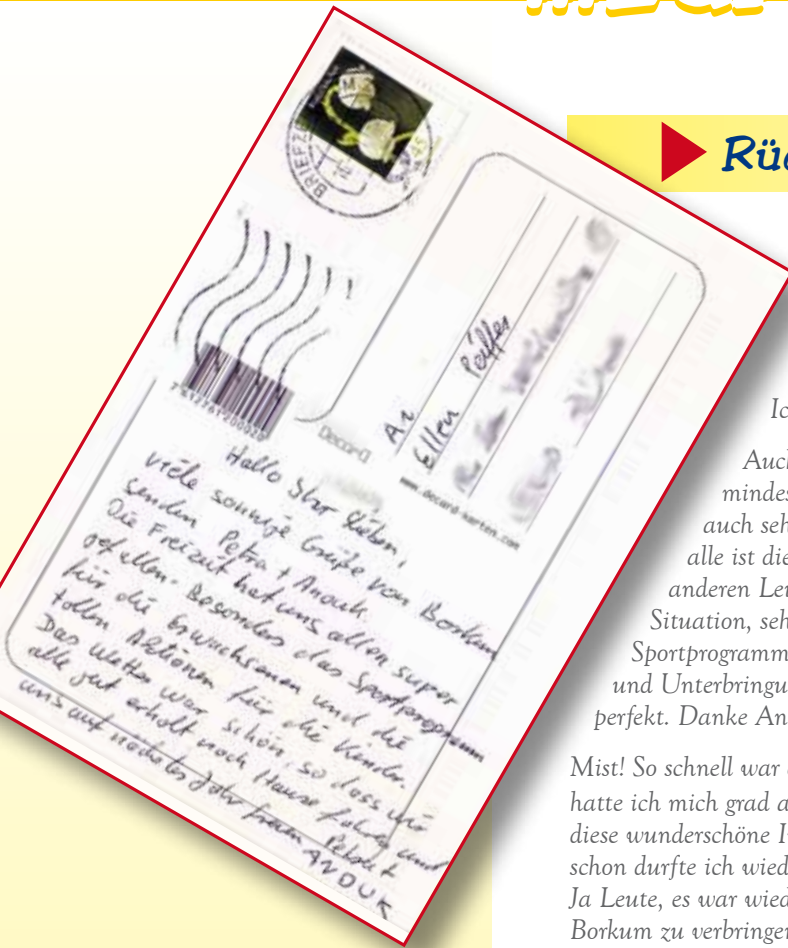 Rüc
BRIEFZE
7612761200020
Decard
www.decard-karten.com
An
Ellen
Hallo Ihr Lieben,
viele sonnige Grüße von Borkum
senden Petra + Anouk
Die Freizeit hat uns allen super
gefallen. Besonders das Sportprogramm
für die Erwachsenen und die
tollen Aktionen für die Kinder.
Das Wetter war schön, so dass wir
alle gut erholt nach Hause fahren und
uns auf nächstes Jahr freuen Petra +
ANOUK
Ic
Auch
mindes
auch seh
alle ist die
anderen Leu
Situation, seh
Sportprogramm
und Unterbringu
perfekt. Danke An
Mist! So schnell war
hatte ich mich grad a
diese wunderschöne I
schon durfte ich wied
Ja Leute, es war wied
Borkum zu verbringen